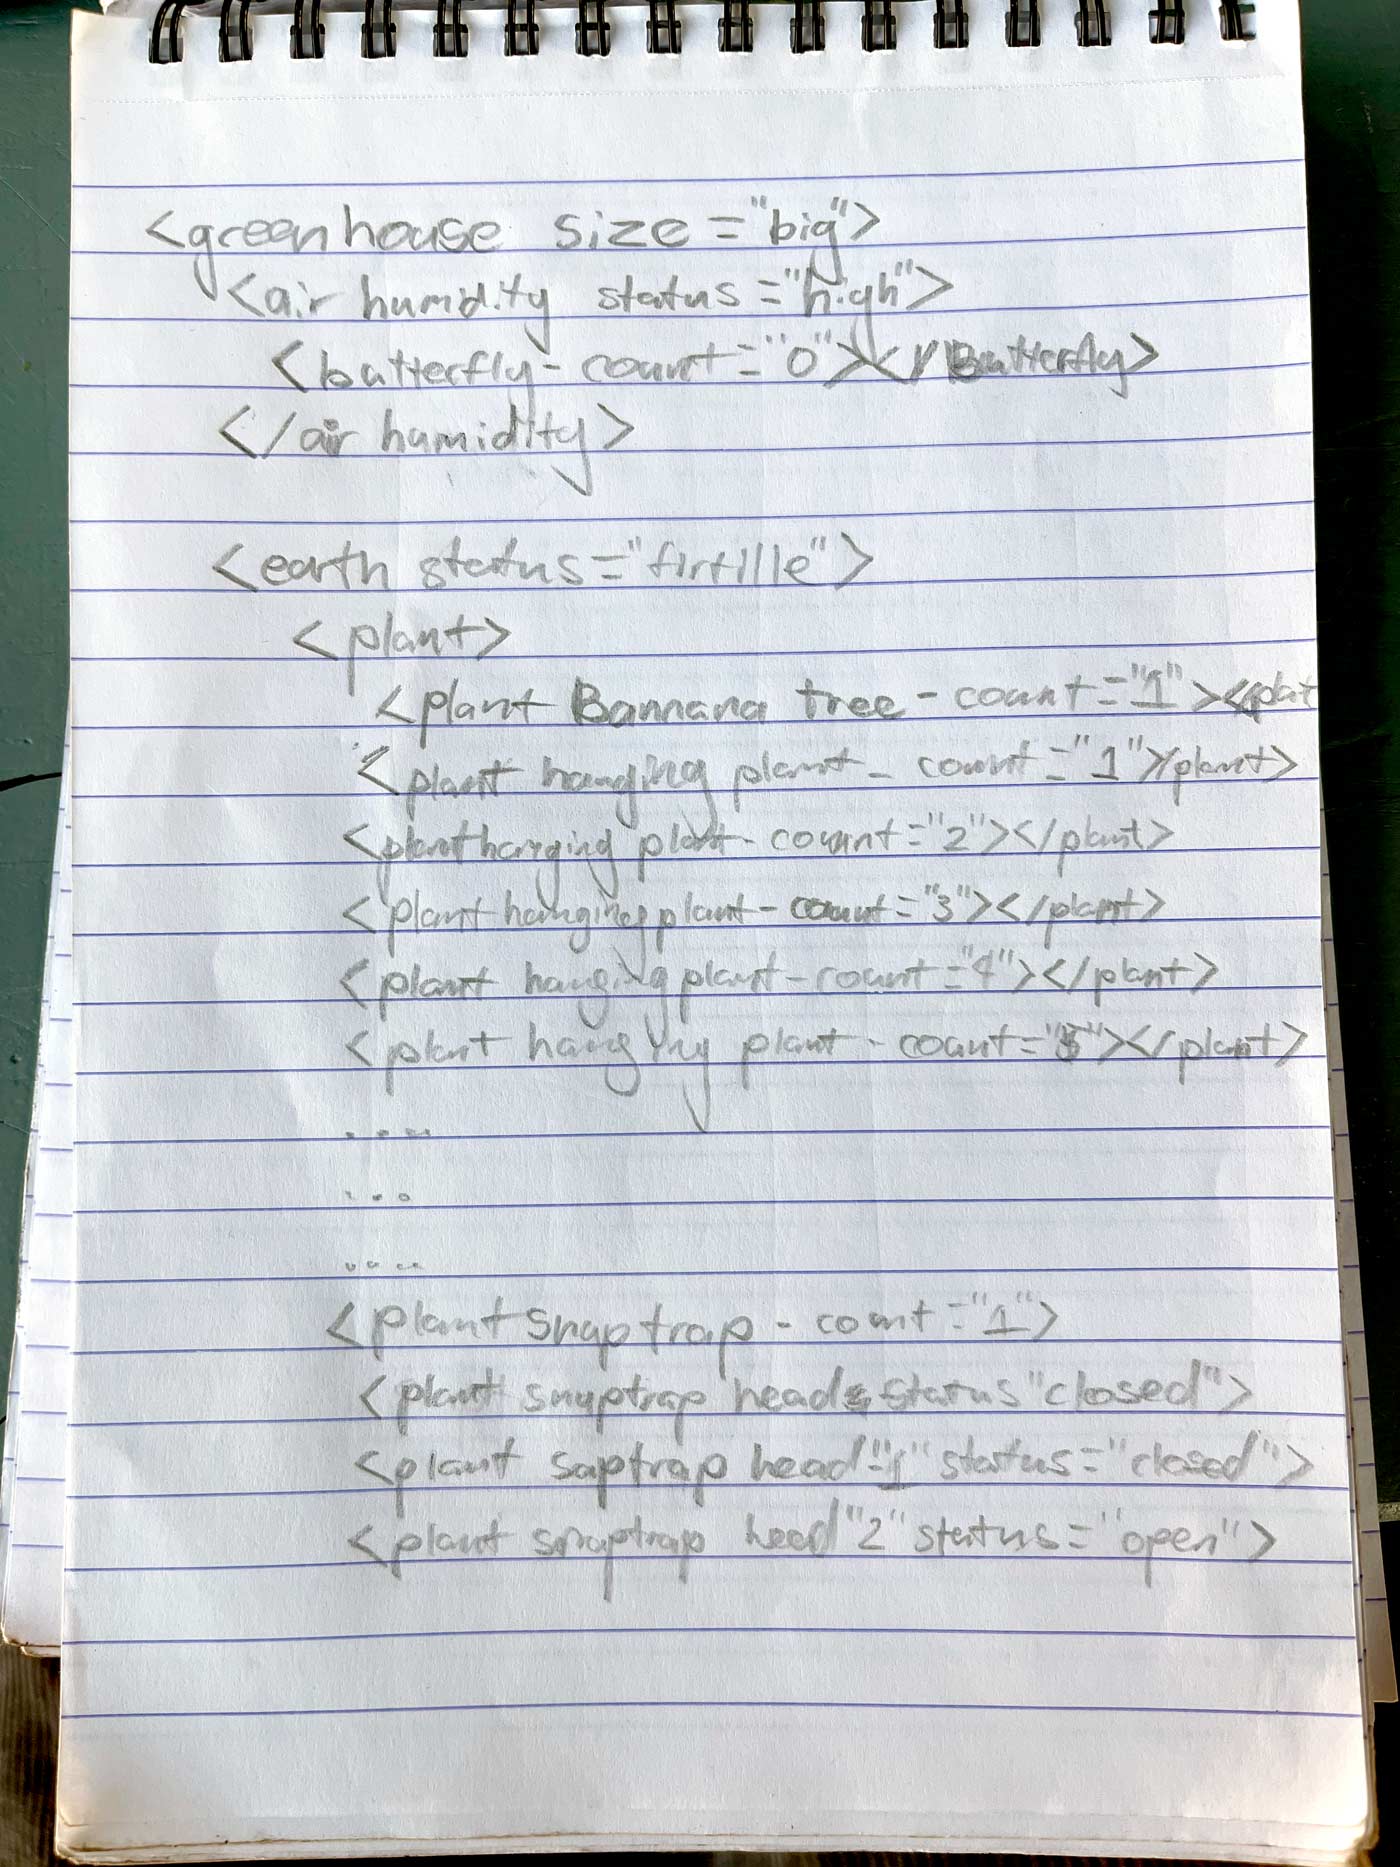 <greenhouse size="big">
<air humidity status="high">
<butterfly-count="0"></Butterfly>
</air humidity>
<earth status="firtille">
<plant>
<plant Bannana tree-count="1"><plat
<plant hanging plant-count="1">/plant>
<plant hanging plant-count="2"></plant>
<plant hanging plant-count="3"></plant>
<plant hanging plant-count="4"></plant>
<plant hanging plant-count="5"></plant>
....
...
....
<plant snaptrap-count="1">
<plant snyptrap heads status "closed">
<plant saptrap head"1" status="closed">
<plant snaptrap head "2" status="open">